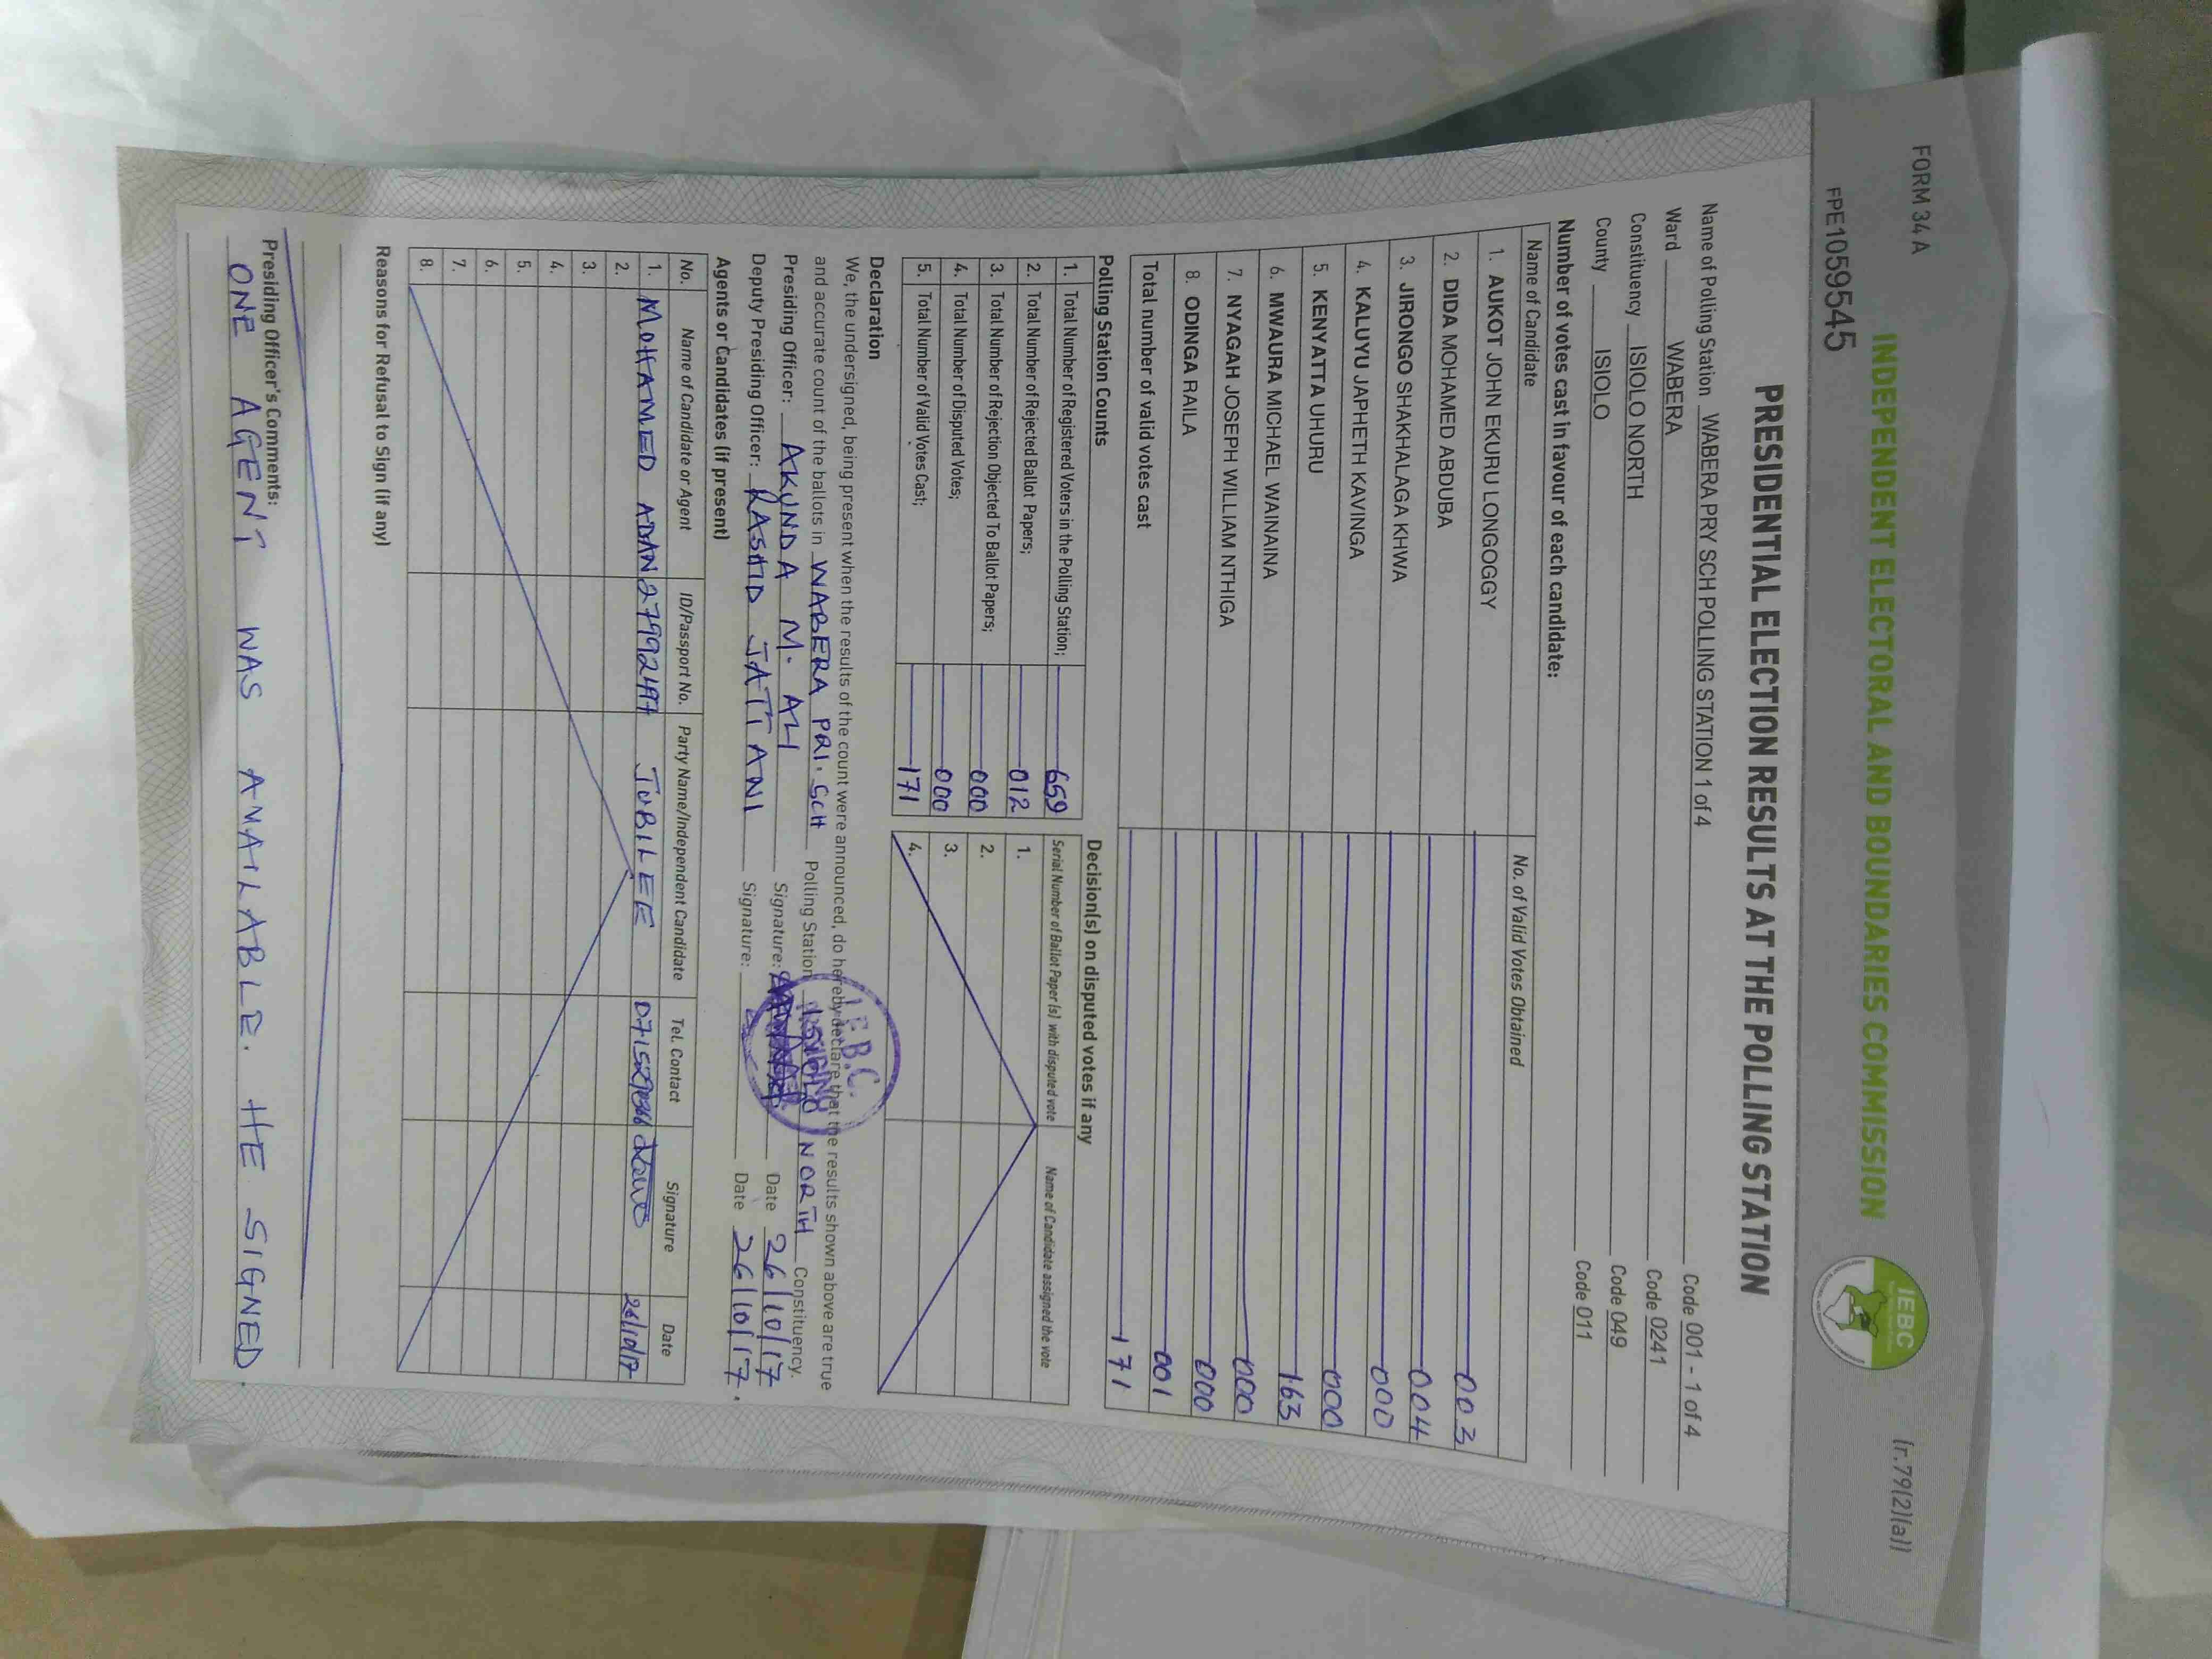 FORM 34 A
(r.79(2)(a))
INDEPENDENT ELECTORAL AND BOUNDARIES COMMISSION
IEBC
FPE1059545
PRESIDENTIAL ELECTION RESULTS AT THE POLLING STATION
Name of Polling Station WABERA PRY SCH POLLING STATION 1 of 4 Code 001 - 1 of 4
Ward WABERA Code 0241
Constituency ISIOLO NORTH Code 049
County ISIOLO Code 011
Number of votes cast in favour of each candidate:
Name of Candidate No. of Valid Votes Obtained
1. AUKOT JOHN EKURU LONGOGGY 003
2. DIDA MOHAMED ABDUBA 004
3. JIRONGO SHAKHALAGA KHWA 000
4. KALUYU JAPHETH KAVINGA 000
5. KENYATTA UHURU 163
6. MWAURA MICHAEL WAINAINA 000
7. NYAGAH JOSEPH WILLIAM NTHIGA 000
8. ODINGA RAILA 001
Total number of valid votes cast 171
Polling Station Counts
1. Total Number of Registered Voters in the Polling Station; 659
2. Total Number of Rejected Ballot Papers; 012
3. Total Number of Rejection Objected To Ballot Papers; 000
4. Total Number of Disputed Votes; 000
5. Total Number of Valid Votes Cast; 171
Decision(s) on disputed votes if any
Serial Number of Ballot Paper (s) with disputed vote Name of Candidate assigned the vote
1.
2.
3.
4.
Declaration
We, the undersigned, being present when the results of the count were announced, do hereby declare that the results shown above are true
and accurate count of the ballots in WABERA PRI. SCH Polling Station ISIOLO NORTH Constituency.
Presiding Officer: AKUNDA M. ALI Signature: Date 26/10/17
Deputy Presiding Officer: RASHID JATTANI Signature: Date 26/10/17.
I.E.B.C.
Agents or Candidates (if present)
No. Name of Candidate or Agent ID/Passport No. Party Name/Independent Candidate Tel. Contact Signature Date
1. MOHAMED ADAN JUBILEE 26/10/17
2.
3.
4.
5.
6.
7.
8.
Reasons for Refusal to Sign (if any)
Presiding Officer's Comments:
ONE AGENT WAS AVAILABLE. HE SIGNED.